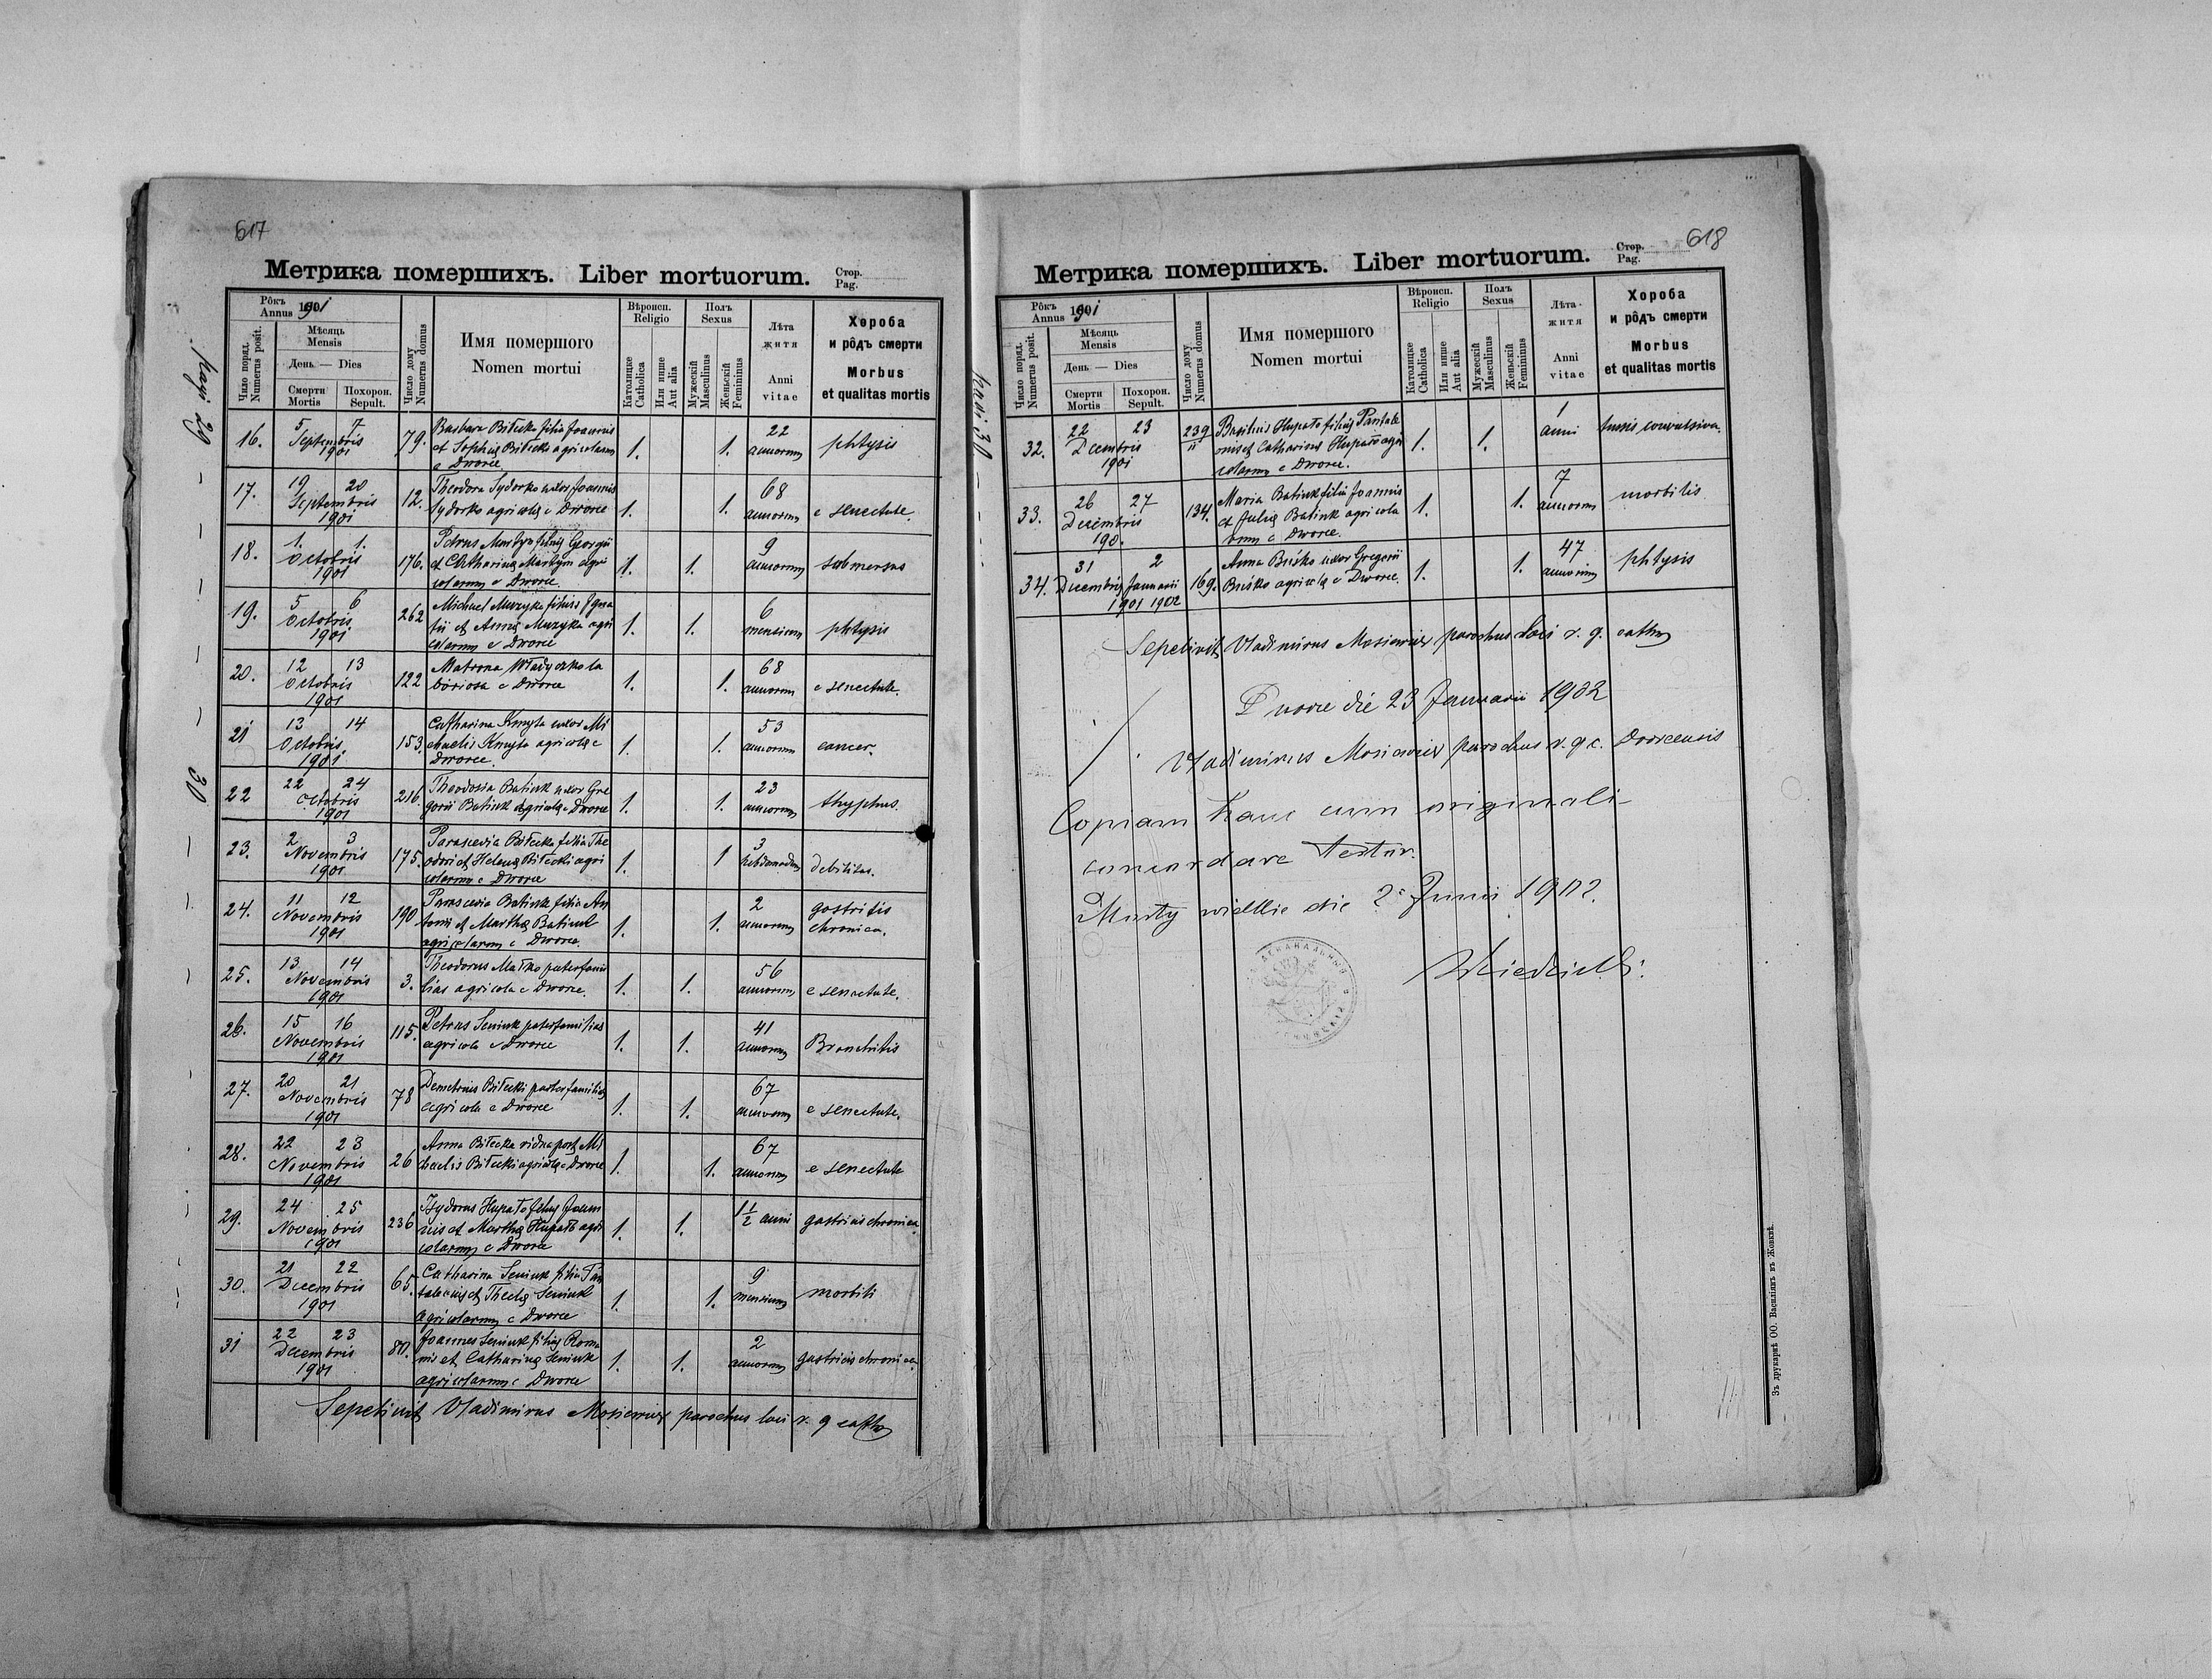 617
Метрика помершихъ. Liber mortuorum.
Стор.
Pag.
Рôкъ
Annus 1901
Число поряд.
Numerus posit.
Мѣсяць
Mensis
День — Dies
Смерти
Mortis
Похорон.
Sepult.
Число дому
Numerus domus
Имя помершого
Nomen mortui
Вѣроисп.
Religio
Католицке
Catholica
Или инше
Aut alia
Полъ
Sexus
Мужескій
Masculinus
Женьскій
Femininus
Лѣта
житя
Anni
vitae
Хороба
и рôдъ смерти
Morbus
et qualitas mortis
16. 5 7 Septembris 1901 79. Barbara Biłecka filia Joannis
et Sophię Biłecki agricolarum
e Dworce 1. 1. 22 annorum phtysis
17. 19 20 Septembris 1901 12. Theodora Sydorko uxor Joannis
Sydorko agricolę e Dworce 1. 1. 68 annorum e senectute.
18. 1. 1. Octobris 1901 176. Petrus Martyn filius Georgii
et Catharinę Martyn agri
colarum e Dworce. 1. 1. 9 annorum submersus
19. 5 6 Octobris 1901 262 Michael Muzyka filius Igna
tii et Annę Muzyka agri
colarum e Dworce 1. 1. 6 mensium phtysis
20. 12 13 Octobris 1901 122 Matrona Władyczko la
boriosa e Dworce 1. 1. 68 annorum e senectute.
21 13 14 Octobris. 1901 153. Catharina Kmyta uxor Mi
chaelis Kmyta agricolę e
Dworce. 1. 1. 53 annorum cancer.
22 22 24 Octobris 1901 216. Theodosia Batiuk uxor Gre
gorii Batiuk agricolę e Dworce 1. 1. 23 annorum thyphus.
23. 2 3 Novembris 1901 175. Parascevia Biłecka filia The
odori et Helenę Biłecki agri
colarum e Dworce 1. 1 3 hebdomadum debilitas.
24. 11 12 Novembris 1901 190 Parascevia Batiuk filia An
tonii et Marthę Batiuk
agricolarum e Dworce. 1. 1. 2 annorum gastritis
chronica.
25. 13 14 Novembris 1901 3. Theodorus Małko paterfami
lias agricola e Dworce. 1. 1. 56 annorum e senectute.
26. 15 16 Novembris 1901 115. Petrus Seniuk paterfamilias
agricola e Dworce 1. 1. 41 annorum Bronchitis
27. 20 21 Novembris 1901 78 Demetrius Biłecki paterfamilias
agricola e Dworce 1. 1. 67 annorum e senectute.
28. 22 23 Novembris 1901 26 Anna Biłecka vidua post Mi
chaelis Biłecki agricolę e Dworce 1. 1. 67 annorum e senectute
29. 24 25 Novembris 1901 236 Isydorus Hupało filius Joan
nis et Marthę Hupało agri
colarum e Dworce 1. 1. 1 1/2 anni gastricis chronica
30. 21 22 Decembris 1901 65. Catharina Seniuk filia Pan
taleonis et Theclę Seniuk
agricolarum e Dworce 1. 1. 9 mensium morbili
31 22 23 Decembris 1901 80. Joannes Seniuk filius Roma
ni et Catharinę Seniuk
agricolarum e Dworce 1. 1. 2 annorum gastricis chronica
Sepelivit Vladimirus Mosiewicz parochus loci r. g. cath
618
Метрика помершихъ. Liber mortuorum.
Стор.
Pag.
Рôкъ
Annus 1901
Число поряд.
Numerus posit.
Мѣсяць
Mensis
День — Dies
Смерти
Mortis
Похорон.
Sepult.
Число дому
Numerus domus
Имя помершого
Nomen mortui
Вѣроисп.
Religio
Католицке
Catholica
Или инше
Aut alia
Полъ
Sexus
Мужескій
Masculinus
Женьскій
Femininus
Лѣта
житя
Anni
vitae
Хороба
и рôдъ смерти
Morbus
et qualitas mortis
32. 22 23 Decembris 1901 239/II Basilius Hupało filius Pantale
onis et Catharinę Hupało agri
colarum e Dworce. 1. 1. 1 anni tussis convulsiva.
33. 26 27 Decembris 190. 134. Maria Batiuk filia Joannis
et Julię Batiuk agricola
rum e Dworce. 1. 1. 7 annorum morbilis
34. 31 2 Decembris Januarii 1901 1902 169. Anna Buśko uxor Gregorii
Buśko agricolę e Dworce. 1. 1. 47 annorum phtysis
Sepelivit Vladimirus Mosiewicz parochus loci r. g. cath
Dworce die 23 Januarii 1902
Vladimirus Mosiewicz parochus r. g c. Dworcensis
Copiam hanc cum originali
concordare testur.
Mosty wielkie die 2 Junii 1902.
Зъ друкарнѣ ОО. Василіянъ въ Жовквѣ.